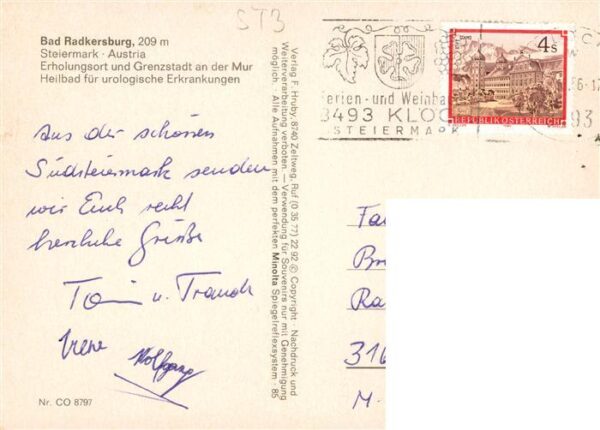 ST3
Bad Radkersburg, 209 m
Steiermark · Austria
Erholungsort und Grenzstadt an der Mur
Heilbad für urologische Erkrankungen
Aus der schönen
Südsteiermark senden
wir Euch recht
herzliche Grüße
u. Traudl
Irene
Wolfgang
Nr. CO 8797
Verlag F. Hruby, 8740 Zeltweg, Ruf (0 35 77) 22 92 © Copyright · Nachdruck und
Weiterverarbeitung verboten. — Verwendung für Souvenirs nur mit Genehmigung
möglich · Alle Aufnahmen mit dem perfekten Minolta Spiegelreflexsystem · 85
Ferien- und Weinba
8493 KLÖC
STEIERMARK
4 S
REPUBLIK ÖSTERREICH
86-17
93
Fa
Br
Ra
316
M-